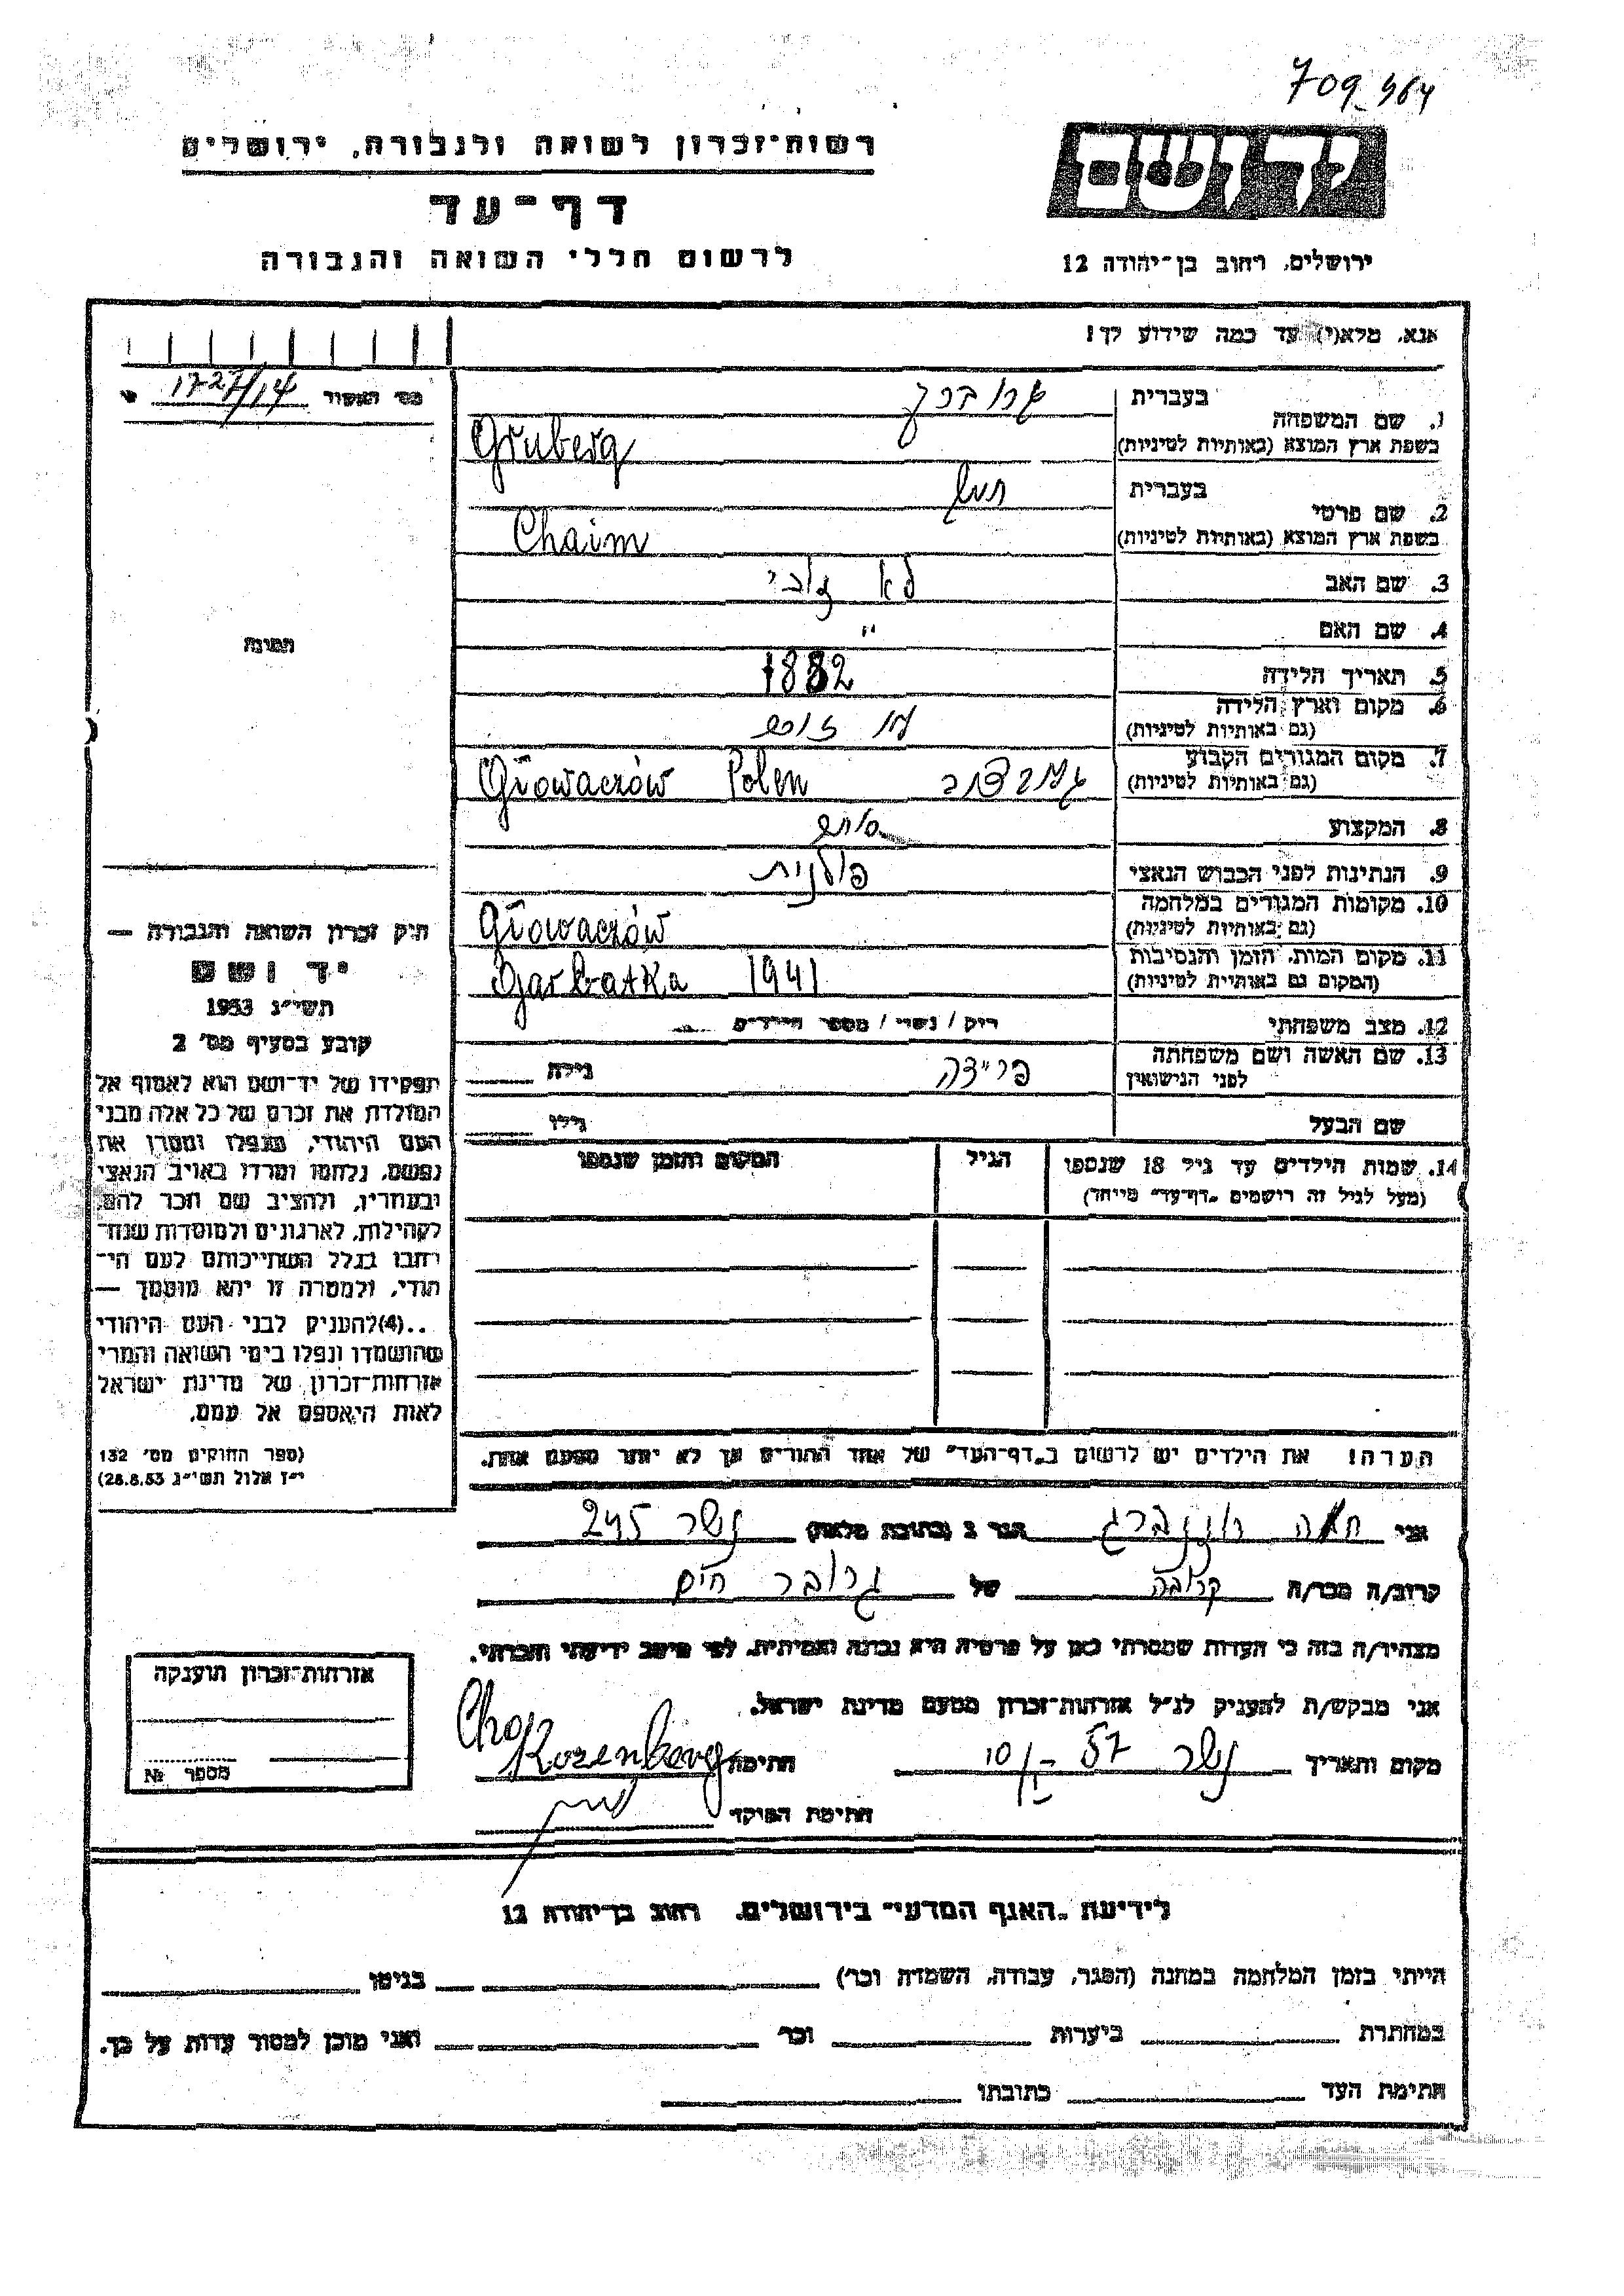 709_464
רשות־זכרון לשואה ולגבורה, ירושלים
יד ושם
דף־עד
לרשום חללי השואה והגבורה
ירושלים, רחוב בן־יהודה 12
אנא, מלא(י) עד כמה שידוע לך!
מס׳ האשור 1727/14
1. שם המשפחה
בעברית
בשפת ארץ המוצא (באותיות לטיניות) Gruberg
2. שם פרטי
בעברית חיים
בשפת ארץ המוצא (באותיות לטיניות) Chaim
3. שם האב לא
4. שם האם "
תמונה
5. תאריך הלידה 1882
6. מקום וארץ הלידה
(גם באותיות לטיניות) לא
7. מקום המגורים הקבוע
(גם באותיות לטיניות) Głowaczów Polen
8. המקצוע סוחר
9. הנתינות לפני הכבוש הנאצי פולנית
10. מקומות המגורים במלחמה
(גם באותיות לטיניות) Głowaczów
11. מקום המות, הזמן והנסיבות
(המקום גם באותיות לטיניות) Garbatka 1941
12. מצב משפחתי רוק / נשוי / מספר הילדים
13. שם האשה ושם משפחתה
לפני הנישואין פריידה גילה
שם הבעל גילו
14. שמות הילדים עד גיל 18 שנספו
(מעל לגיל זה רושמים „דף־עד" מיוחד)
הגיל
המקום והזמן שנספו
חוק זכרון השואה והגבורה —
יד ושם
תשי״ג 1953
קובע בסעיף מס׳ 2
תפקידו של יד־ושם הוא לאסוף אל
המולדת את זכרם של כל אלה מבני
העם היהודי, שנפלו ומסרו את
נפשם, נלחמו ומרדו באויב הנאצי
ובעוזריו, ולהציב שם וזכר להם,
לקהילות, לארגונים ולמוסדות שנח־
רבו בגלל השתייכותם לעם הי־
הודי, ולמטרה זו יהא מוסמך —
..(4)להעניק לבני העם היהודי
שהושמדו ונפלו בימי השואה והמרי
אזרחות־זכרון של מדינת ישראל
לאות היאספם אל עמם.
(ספר החוקים מס׳ 132
י״ז אלול תשי״ג 28.8.53)
הערה! את הילדים יש לרשום ב„דף־העד" של אחד ההורים אך לא יותר מפעם אחת.
אני חוה רוזנברג הגר ב (כתובת מלאה) נשר 245
קרוב/ה מכר/ה קרובה של גרובר חיים
מצהיר/ה בזה כי העדות שמסרתי כאן על פרטיה היא נכונה ואמיתית, לפי מיטב ידיעתי והכרתי.
אני מבקש/ת להעניק לנ״ל אזרחות־זכרון מטעם מדינת ישראל.
מקום ותאריך נשר 57 חתימה Rozenberg
חתימת הפוקד
אזרחות־זכרון הוענקה
מספר №
לידיעת „האגף המדעי" בירושלים, רחוב בן־יהודה 12
הייתי בזמן המלחמה במחנה (הסגר, עבודה, השמדה וכר׳) בגיטו
במחתרת ביערות וכר׳ ואני מוכן למסור עדות על כך.
חתימת העד כתובתו